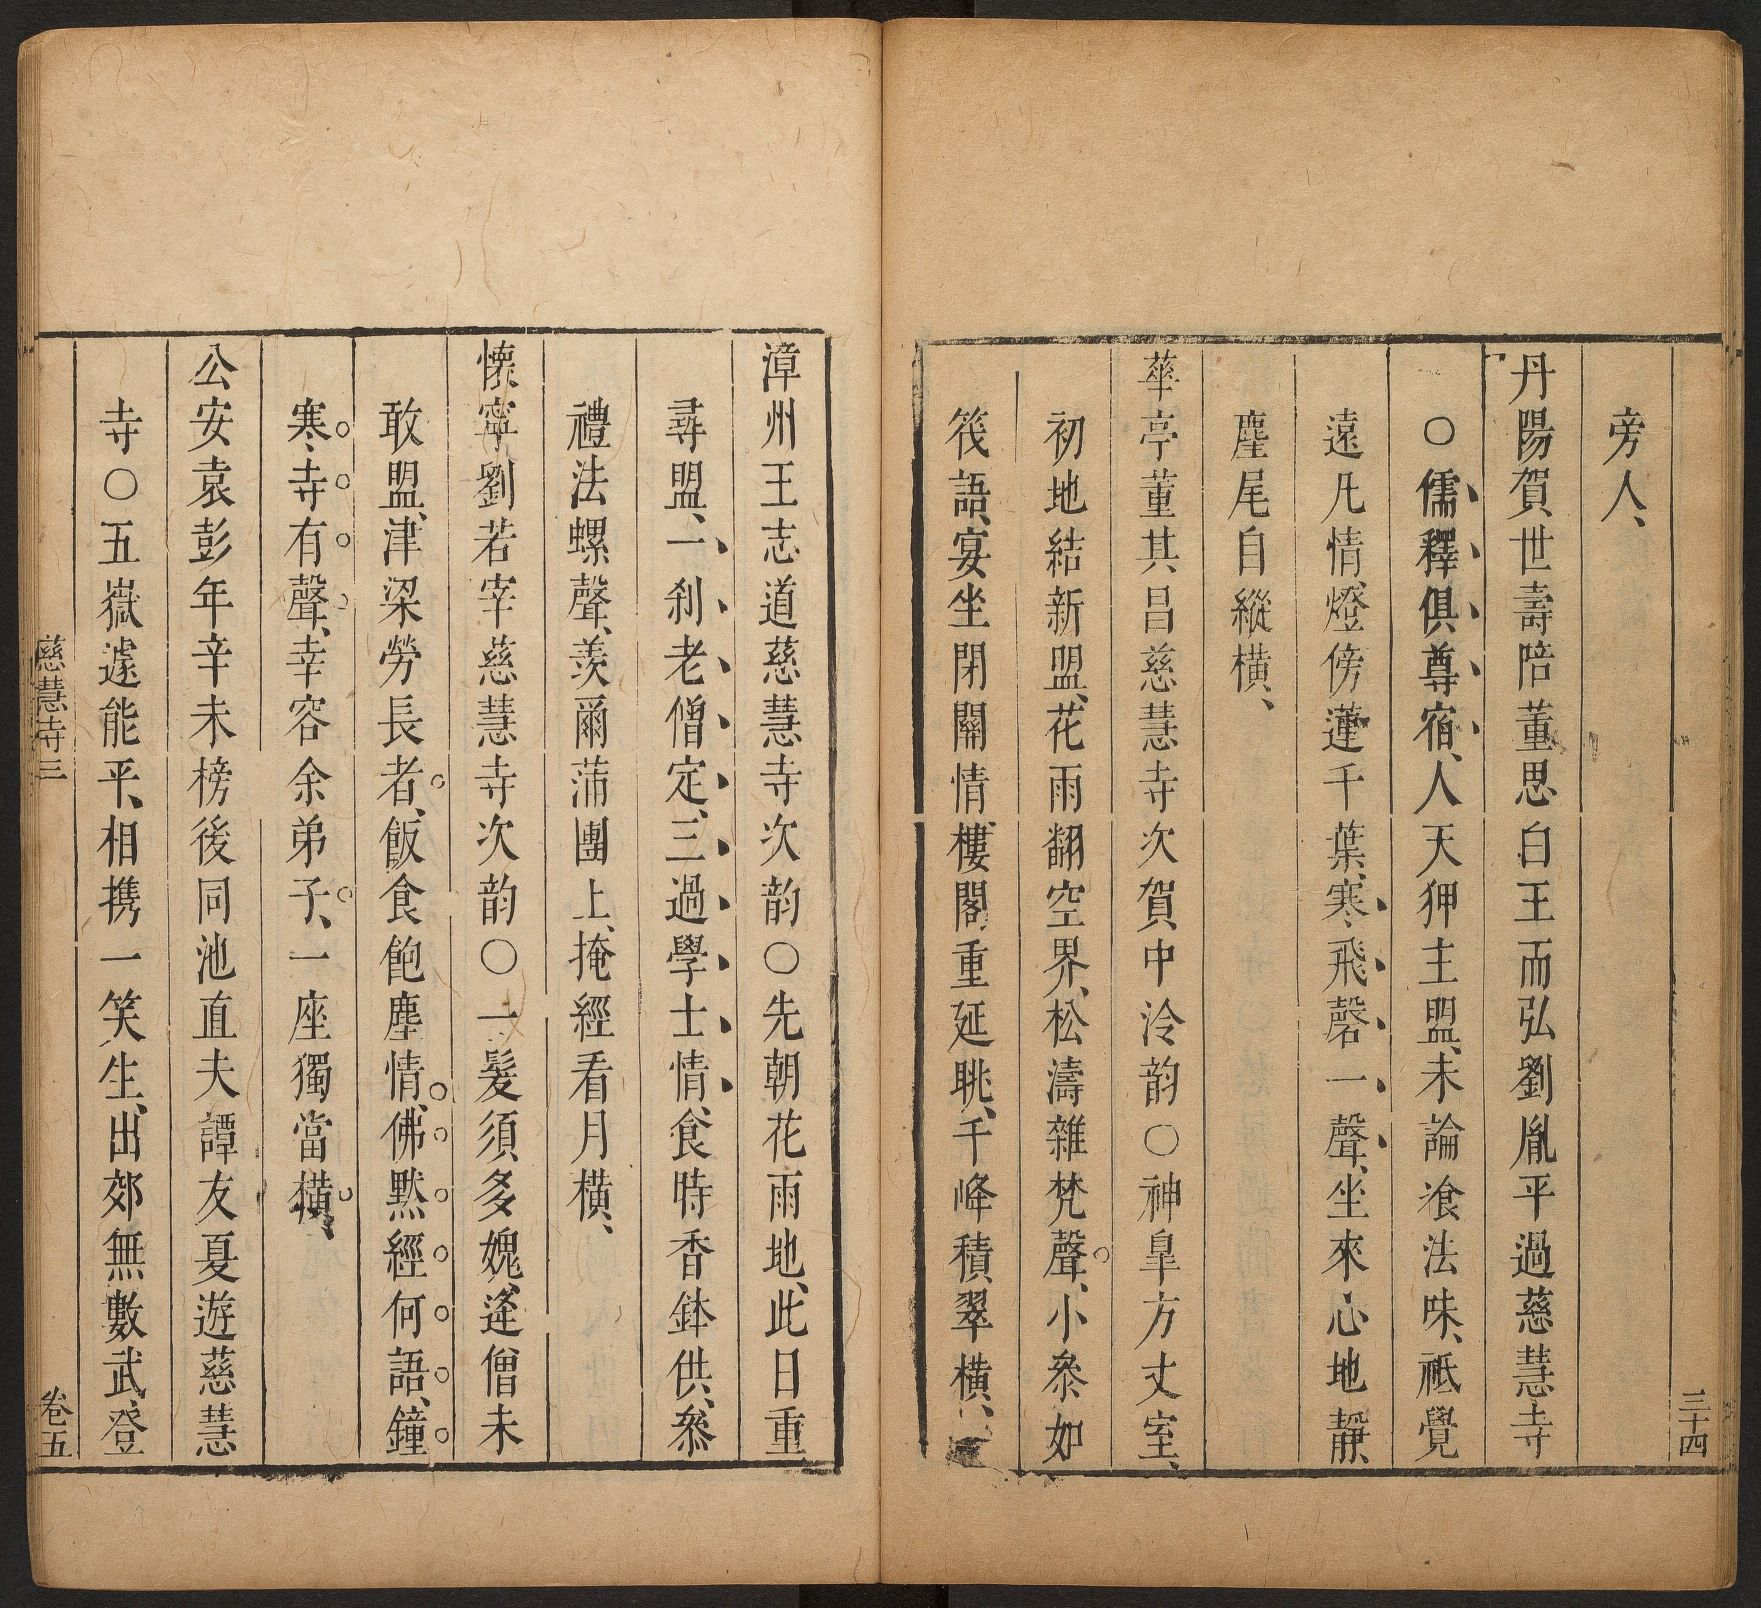 三十四
旁人、
丹陽賀世壽陪董思白王而弘劉胤平過慈慧寺
○儒釋俱尊宿、人天狎主盟、未論飡法味、祗覺
遠凡情、燈傍蓮千葉、寒飛磬一聲、坐來心地靜、
麈尾自縱橫、
華亭董其昌慈慧寺次賀中泠韵○神皐方丈室、
初地結新盟、花雨翻空界、松濤雜梵聲、小叅如
筏語、宴坐閉關情、樓閣重延眺、千峰積翠橫、
漳州王志道慈慧寺次韵○先朝花雨地、此日重
尋盟、一刹老僧定、三過學士情、食時香鉢供、叅
禮法螺聲、羨爾蒲團上、掩經看月橫、
懷寧劉若宰慈慧寺次韵○一髮須多媿、逢僧未
敢盟、津梁勞長者、飯食飽塵情、佛黙經何語、鐘
寒寺有聲、幸容余弟子、一座獨當橫、
公安袁彭年辛未榜後同池直夫譚友夏遊慈慧
寺○五嶽遽能平、相携一笑生、出郊無數武、登
慈慧寺三
卷五